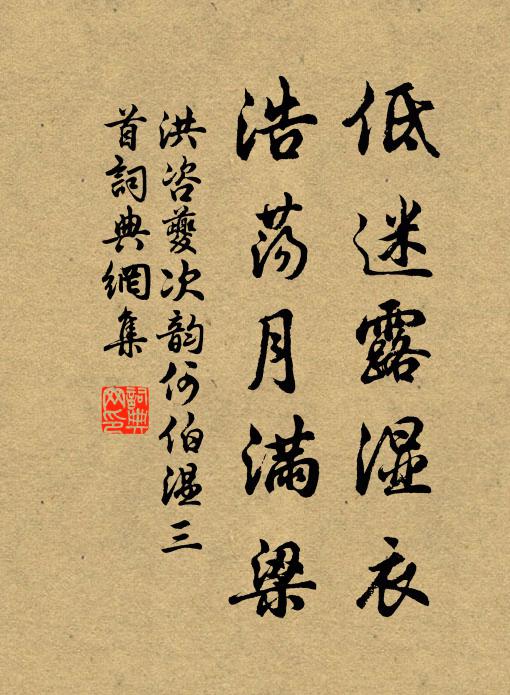 低迷露湿衣
浩荡月满梁
洪咨夔次韵何伯温三
首词典網集
詞典網印